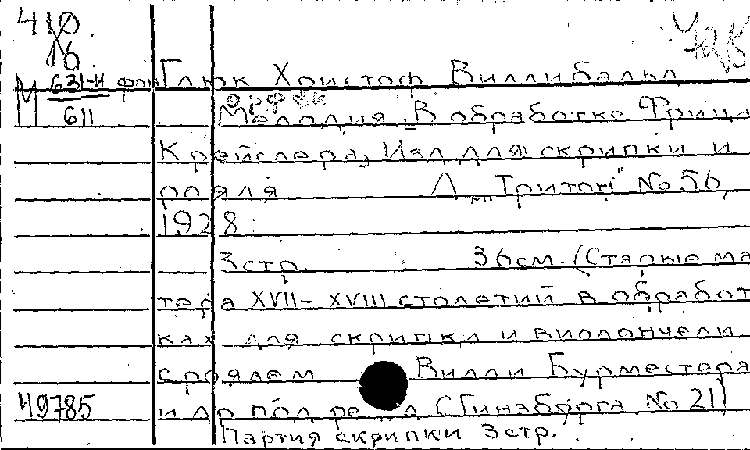 410.
16
М 631-н фрн Глюк Христоф Виллибальд
611
Орфей
Мелодия. В обработке Фрица
Крейслера, Изд для скрипки и
рояля Л „Тритон" No 56,
1928.
3стр. 36см. (Старые ма
тера XVII-XVIII столетий в обработ
ках для скрипки и виолончели
с роялем Вилли Бурместера
49785 и др под ред С Гинзбурга No 21)
Партия скрипки 3стр.